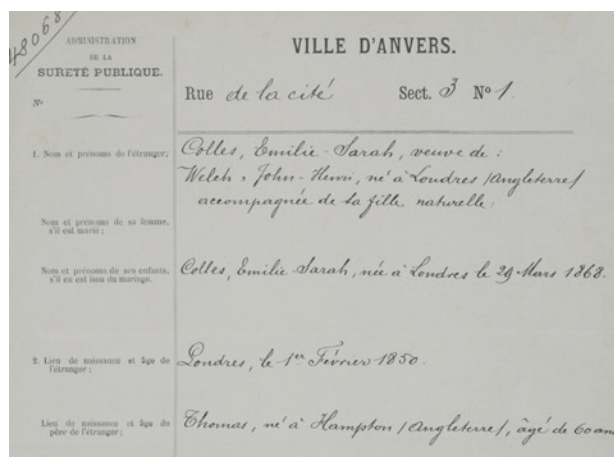 48068
ADMINISTRATION
DE LA
SURETÉ PUBLIQUE.
No
VILLE D'ANVERS.
Rue de la cité Sect. 3 No 1
1. Nom et prénoms de l'étranger;
Colles, Emilie-Sarah, veuve de :
Welch, John-Henri, né à Londres /Angleterre/
accompagnée de sa fille naturelle:
Nom et prénoms de sa femme,
s'il est marié ;
Nom et prénoms de ses enfants,
s'il en est issu du mariage.
Colles, Emilie-Sarah, née à Londres le 29 Mars 1868.
2. Lieu de naissance et âge de
l'étranger;
Londres, le 1er Février 1850.
Lieu de naissance et âge du
père de l'étranger;
Thomas, né à Hampton /Angleterre/, âgé de 60 ans